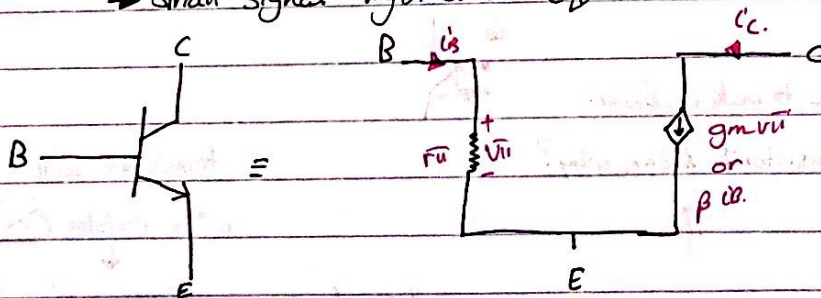 → small signal
C
B
E
=
B iB
rπ
+
Vπ
-
iC.
C
gm vπ
or
β iB.
E